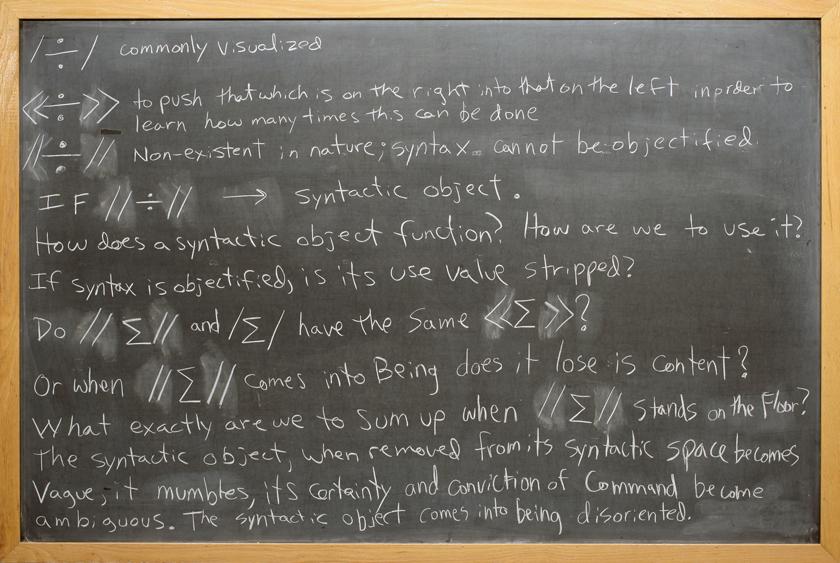 /÷/ commonly visualized
<<÷>> to push that which is on the right into that on the left in order to
learn how many times this can be done
//÷// Non-existent in nature; syntax cannot be objectified.
IF //÷// → syntactic object.
How does a syntactic object function? How are we to use it?
If syntax is objectified, is its use value stripped?
Do //Σ// and /Σ/ have the same <<Σ>>?
Or when //Σ// comes into Being does it lose is content?
What exactly are we to sum up when //Σ// stands on the Floor?
The syntactic object, when removed from its syntactic space becomes
Vague; it mumbles, its certainty and conviction of Command become
ambiguous. The syntactic object comes into being disoriented.